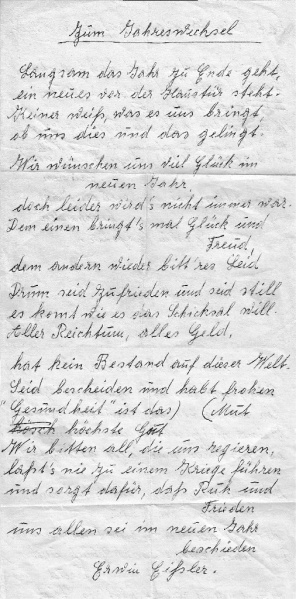 Zum Jahreswechsel
Langsam das Jahr zu Ende geht,
ein neues vor der Haustür steht.
Keiner weiß, was es uns bringt,
ob uns dies und das gelingt.
Wir wünschen uns viel Glück im
neuen Jahr,
doch leider wird's nicht immer wahr.
Dem einen bringt's mal Glück und
Freud,
dem andern wieder bitt'res Leid
Drum seid zufrieden und seid still
es komt wie es das Schicksal will.
Aller Reichtum, alles Geld,
hat kein Bestand auf dieser Welt.
Seid bescheiden und habt frohen
"Gesundheit" ist das) (Mut
höchste Gut
Wir bitten all, die uns regieren,
laßt's nie zu einem Kriege führen
und sorgt dafür, daß Ruh und
Frieden
uns allen sei im neuen Jahr
beschieden
Erwin Eißler.